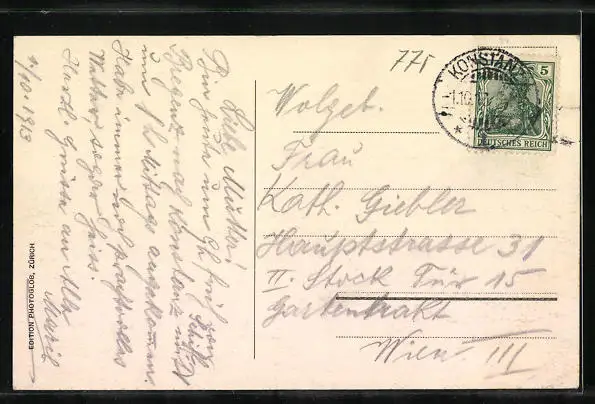 1/10. 1913
Liebe Mutter!
Bin heute um 6h früh von
Bregenz nach Konstanz mit Schiff
um 1h Mittags angekommen.
Habe immer noch prachtvolles
Wetter, sogar heiss.
Herzl. Grüsse an Alle
EDITION PHOTOGLOB, ZÜRICH
775
KONSTANZ
1.10.13
5
DEUTSCHES REICH
Wolgeb.
Frau
Kath. Giebler
Hauptstrasse 31
II. Stock Tür 15
Gartentrakt
Wien. III